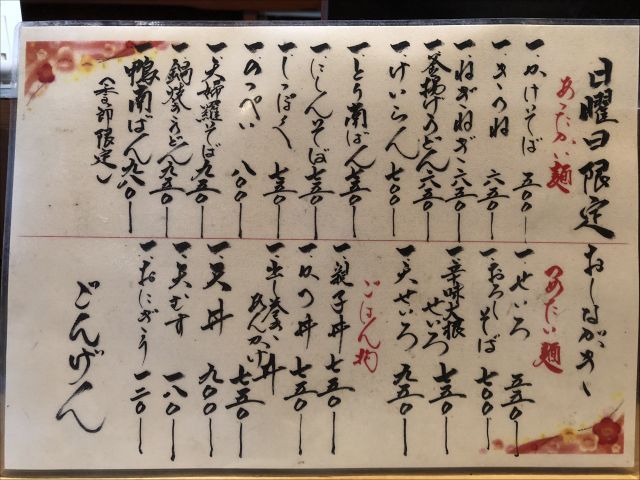 日曜日限定
おしながき
あったかい麺
一かけそば 五〇〇
一きつね 六五〇
一ねぎねぎ 六五〇
一釜揚げうどん 六五〇
一けいらん 七〇〇
一とり南ばん 七五〇
一にしんそば 七五〇
一しっぽく 七五〇
一のっぺい 八〇〇
一天婦羅そば 九五〇
一鍋焼きうどん 九五〇
一鴨南ばん 九八〇
つめたい麺
一せいろ 五五〇
一おろしそば 七〇〇
一辛味大根せいろ 七五〇
一天せいろ 九五〇
ごはん物
一親子丼 七五〇
一きつね丼 七五〇
一出し巻きあんかけ丼 七五〇
一天丼 九〇〇
一天むす 一八〇
一おにぎり 一二〇
どんげん